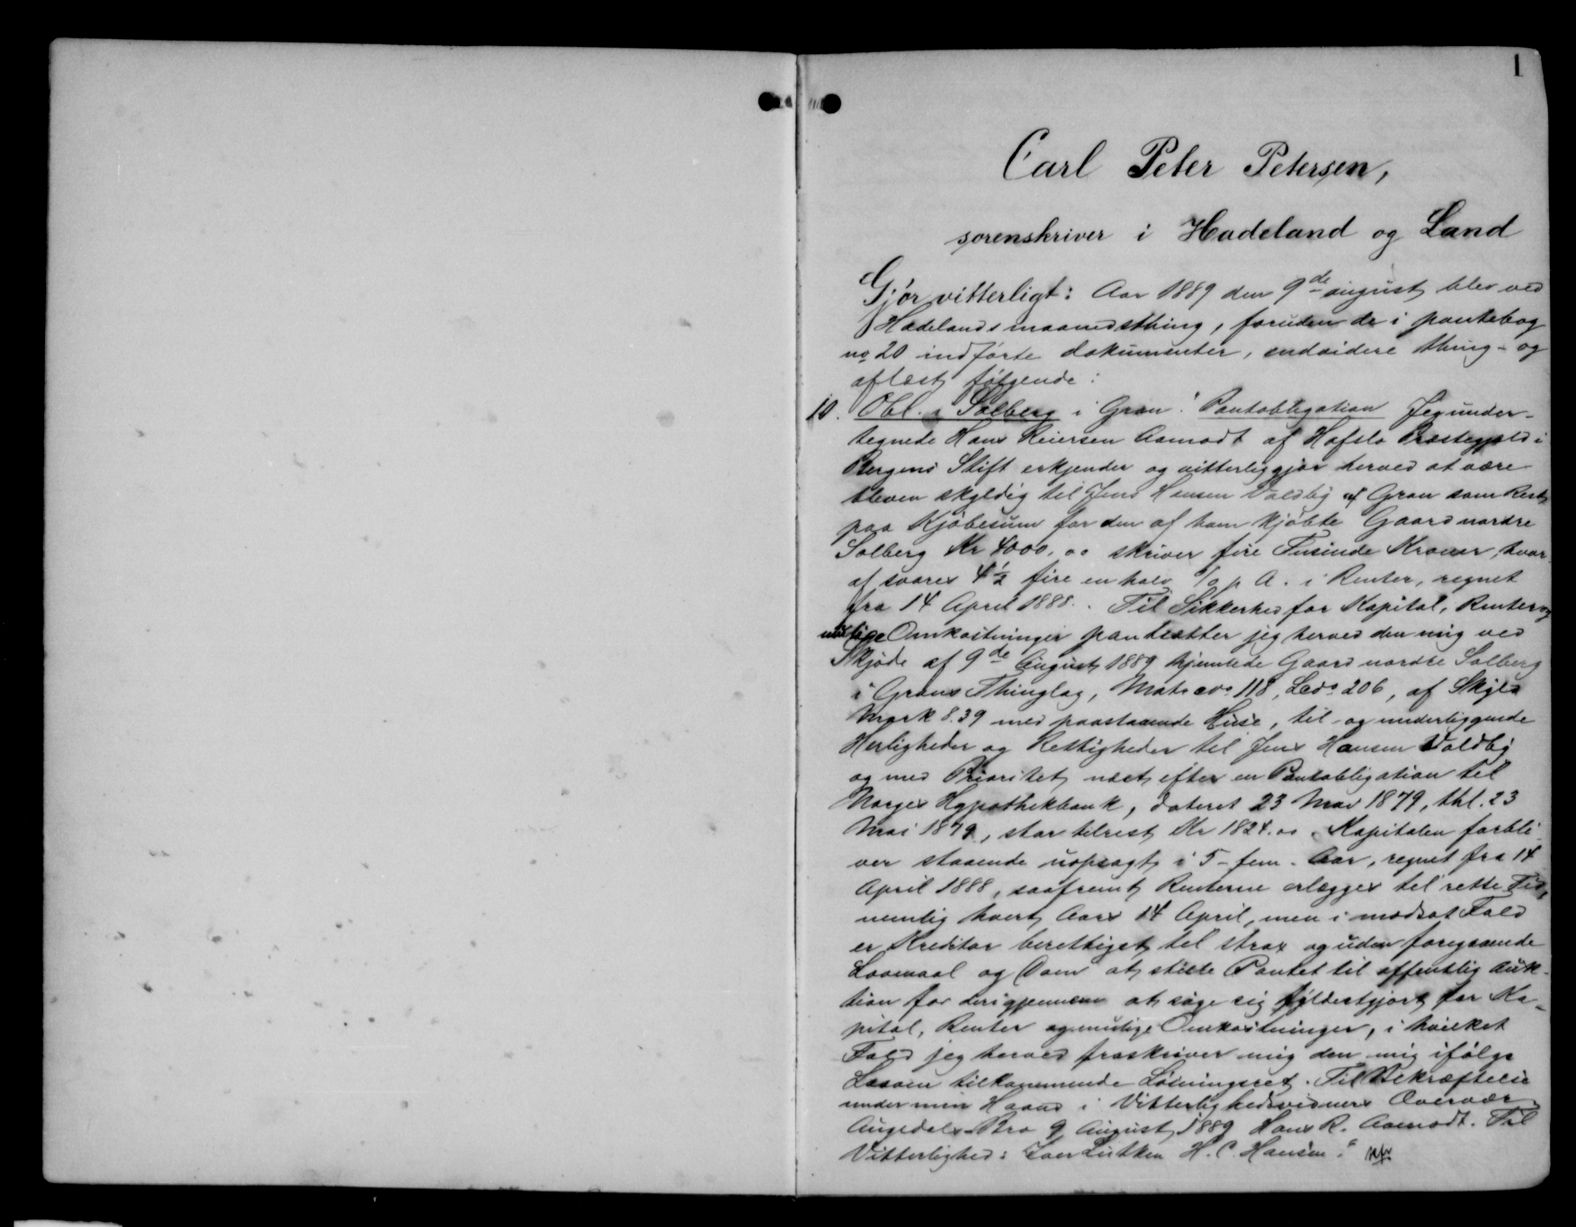 1
Carl Peter Petersen,
sorenskriver i Hadeland og Land
Gjør vitterligt: Aar 1889 den 9de august blev ved
Hadelands maanedsthing, foruden de i pantebog
no 20 indførte dokumenter, endvidere thing- og
aflæst følgende:
10. Obl. i Solberg i Gran. "Pantobligation Jeg under-
tegnede Hans Reiersen Aamodt af Hafslo Præstegjeld i
Bergens Stift erkjender og vitterliggjør herved at være
bleven skyldig til Jens Hansen Valdby af Gran som Rest
paa Kjøbesum for den af ham kjøbte Gaard nordre
Solberg Kr 4000,00 skriver fire Tusinde Kroner, hvor-
af svares 4½ fire en halv % p A. i Renter, regnet
fra 14 April 1888. Til Sikkerhed for Kapital, Renter og
mulige Omkostninger pantsætter jeg herved den mig ved
Skjøde af 9de August 1889 hjemlede Gaard nordre Solberg
i Grans Thinglag, Mats avo 118, Lødo 206, af Skyld
Mark 8.39 med paastaaende Huse, til- og underliggende
Herligheder og Rettigheder til Jens Hansen Valdby
og med Prioritet næst efter en Pantobligation til
Norges Hypothekbank, dateret 23 Mai 1879, thl. 23
Mai 1879, stor tilrest Kr 1824.00. Kapitalen forbli-
ver staaende uopsagt i 5- fem- Aar, regnet fra 14
April 1888, saafremt Renterne erlægges til rette Tid,
nemlig hvert Aars 14 April, men i modsat Fald
er Kreditor berettiget til strax og uden foregaaende
Lovmaal og Dom at stille Pantet til offentlig Auk-
tion for derigjennem at søge sig fyldestgjort for Ka-
pital, Renter og mulige Omkostninger, i hvilket
Fald jeg herved fraskriver mig den mig ifølge
Loven tilkommende Løsningsret. Til Bekræftelse
under min Haand i Vitterlighedsvidners Overvær
Augedals Bro 9 August 1889 Hans R. Aamodt. Til
Vitterlighed: Iver Lütken H. C. Hansen."